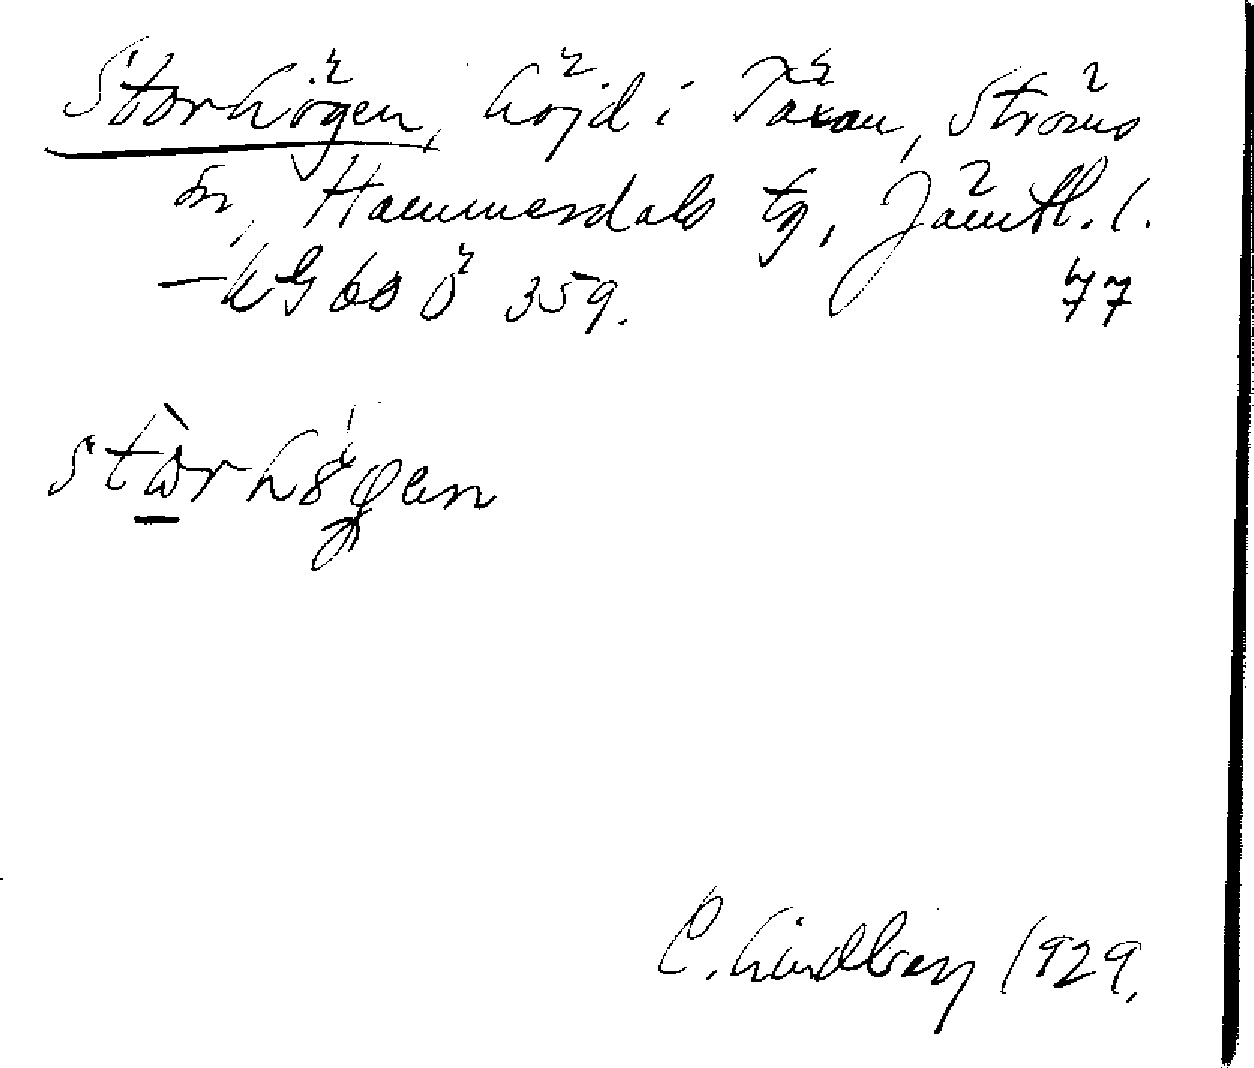 Storhögen, höjd i Täxan, Ströms
sn, Hammerdals tg, Jämtl. l.
— KG 60 Ö 359. 77
C. Lindberg 1929.